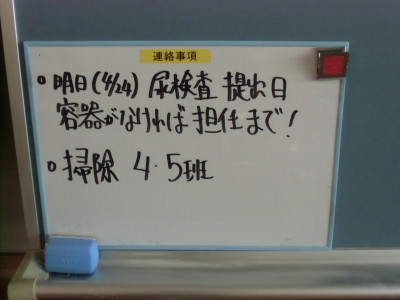 連絡事項
○ 明日(4/24) 尿検査 提出日
容器がなければ 担任まで!
○ 掃除 4・5班